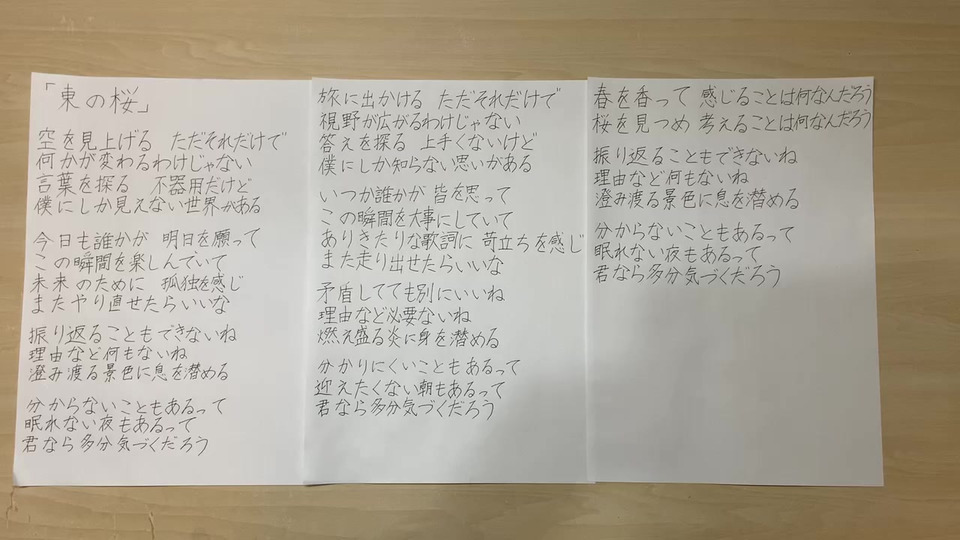 「東の桜」
空を見上げる　ただそれだけで
何かが変わるわけじゃない
言葉を探る　不器用だけど
僕にしか見えない世界がある
今日も誰かが　明日を願って
この瞬間を楽しんでいて
未来のために　孤独を感じ
またやり直せたらいいな
振り返ることもできないね
理由など何もないね
澄み渡る景色に息を潜める
分からないこともあるって
眠れない夜もあるって
君なら多分気づくだろう
旅に出かける　ただそれだけで
視野が広がるわけじゃない
答えを探る　上手くないけど
僕にしか知らない思いがある
いつか誰かが　皆を思って
この瞬間を大事にしていて
ありきたりな歌詞に　苛立ちを感じ
また走り出せたらいいな
矛盾してても別にいいね
理由など必要ないね
燃え盛る炎に身を潜める
分かりにくいこともあるって
迎えたくない朝もあるって
君なら多分気づくだろう
春を香って　感じることは何なんだろう
桜を見つめ　考えることは何なんだろう
振り返ることもできないね
理由など何もないね
澄み渡る景色に息を潜める
分からないこともあるって
眠れない夜もあるって
君なら多分気づくだろう